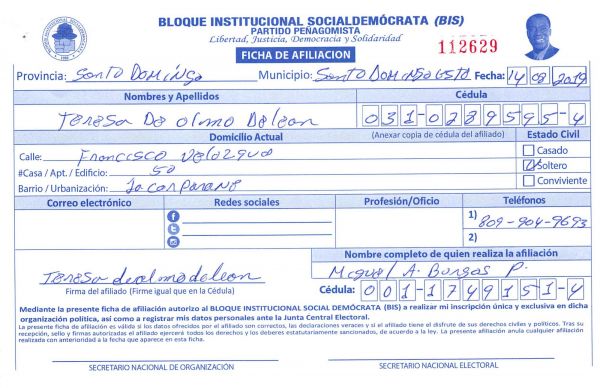 BLOQUE INSTITUCIONAL SOCIALDEMÓCRATA (BIS)
PARTIDO PEÑAGOMISTA
Libertad, Justicia, Democracia y Solidaridad
FICHA DE AFILIACION
112629
Provincia: Santo Domingo Municipio: Santo Domingo Este Fecha: 14 08 2019
Nombres y Apellidos Cédula
Teresa De olmo Deleon 031-0289595-4
Domicilio Actual (Anexar copia de cédula del afiliado) Estado Civil
Calle: Francisco Velazque Casado
#Casa / Apt. / Edificio: 50 Soltero
Barrio / Urbanización: Conviviente
Correo electrónico Redes sociales Profesión/Oficio Teléfonos
1) 809-904-9693
2)
Nombre completo de quien realiza la afiliación
Teresa de olmo deleon Miguel A. Burgos P.
Firma del afiliado (Firme igual que en la Cédula) Cédula: 001-1749151-4
Mediante la presente ficha de afiliación autorizo al BLOQUE INSTITUCIONAL SOCIAL DEMÓCRATA (BIS) a realizar mi inscripción única y exclusiva en dicha
organización política, así como a registrar mis datos personales ante la Junta Central Electoral.
La presente ficha de afiliación es válida si los datos ofrecidos por el afiliado son correctos, las declaraciones veraces y si el afiliado tiene el disfrute de sus derechos civiles y políticos. Tras su
recepción, sello y firmas autorizadas el afiliado ejercerá todos los derechos y los deberes estatutariamente sancionados, de acuerdo a la ley. La presente afiliación anula cualquier afiliación
realizada con anterioridad a la fecha que aparece en esta ficha.
SECRETARIO NACIONAL DE ORGANIZACIÓN SECRETARIO NACIONAL ELECTORAL